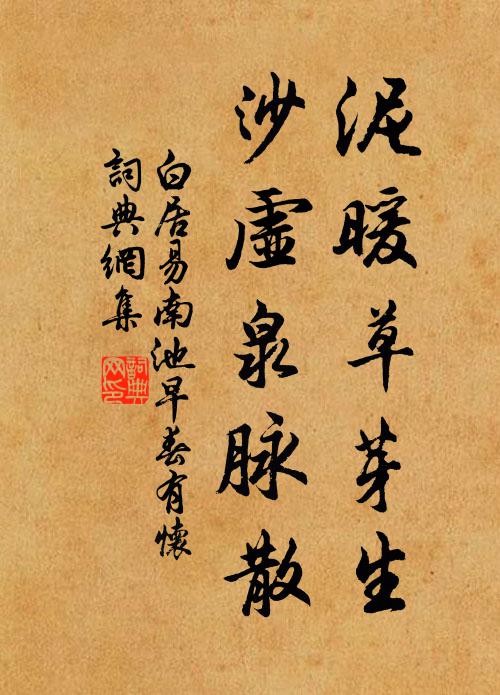 泥暖草芽生
沙虛泉脉散
白居易南池早春有懷
詞典網集
詞典網印